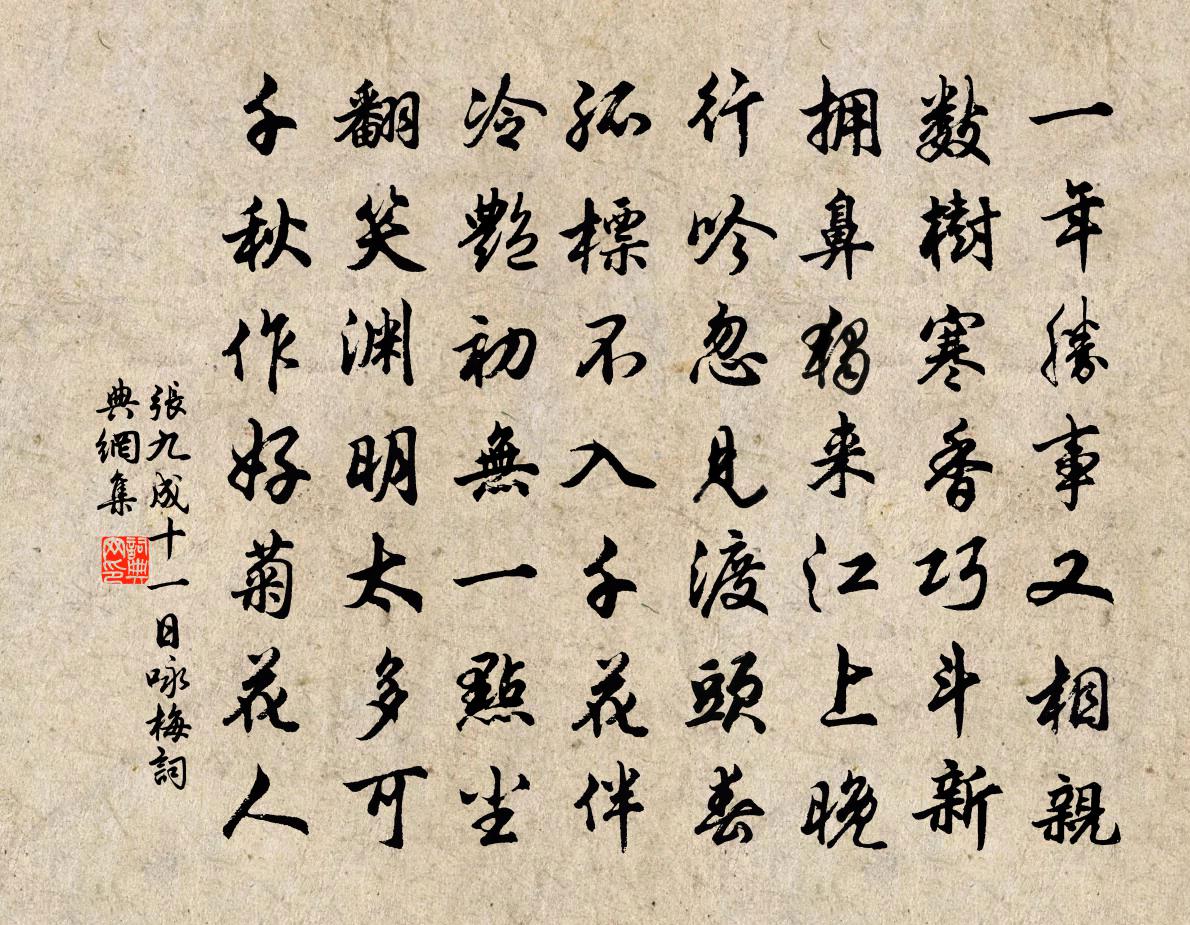 一年勝事又相親
數樹寒香巧斗新
拥鼻獨来江上晚
行吟忽見渡頭春
孤標不入千花伴
冷艷初無一點尘
翻笑渊明太多可
千秋作好菊花人
張九成十一日咏梅詞
典網集
詞典
网印